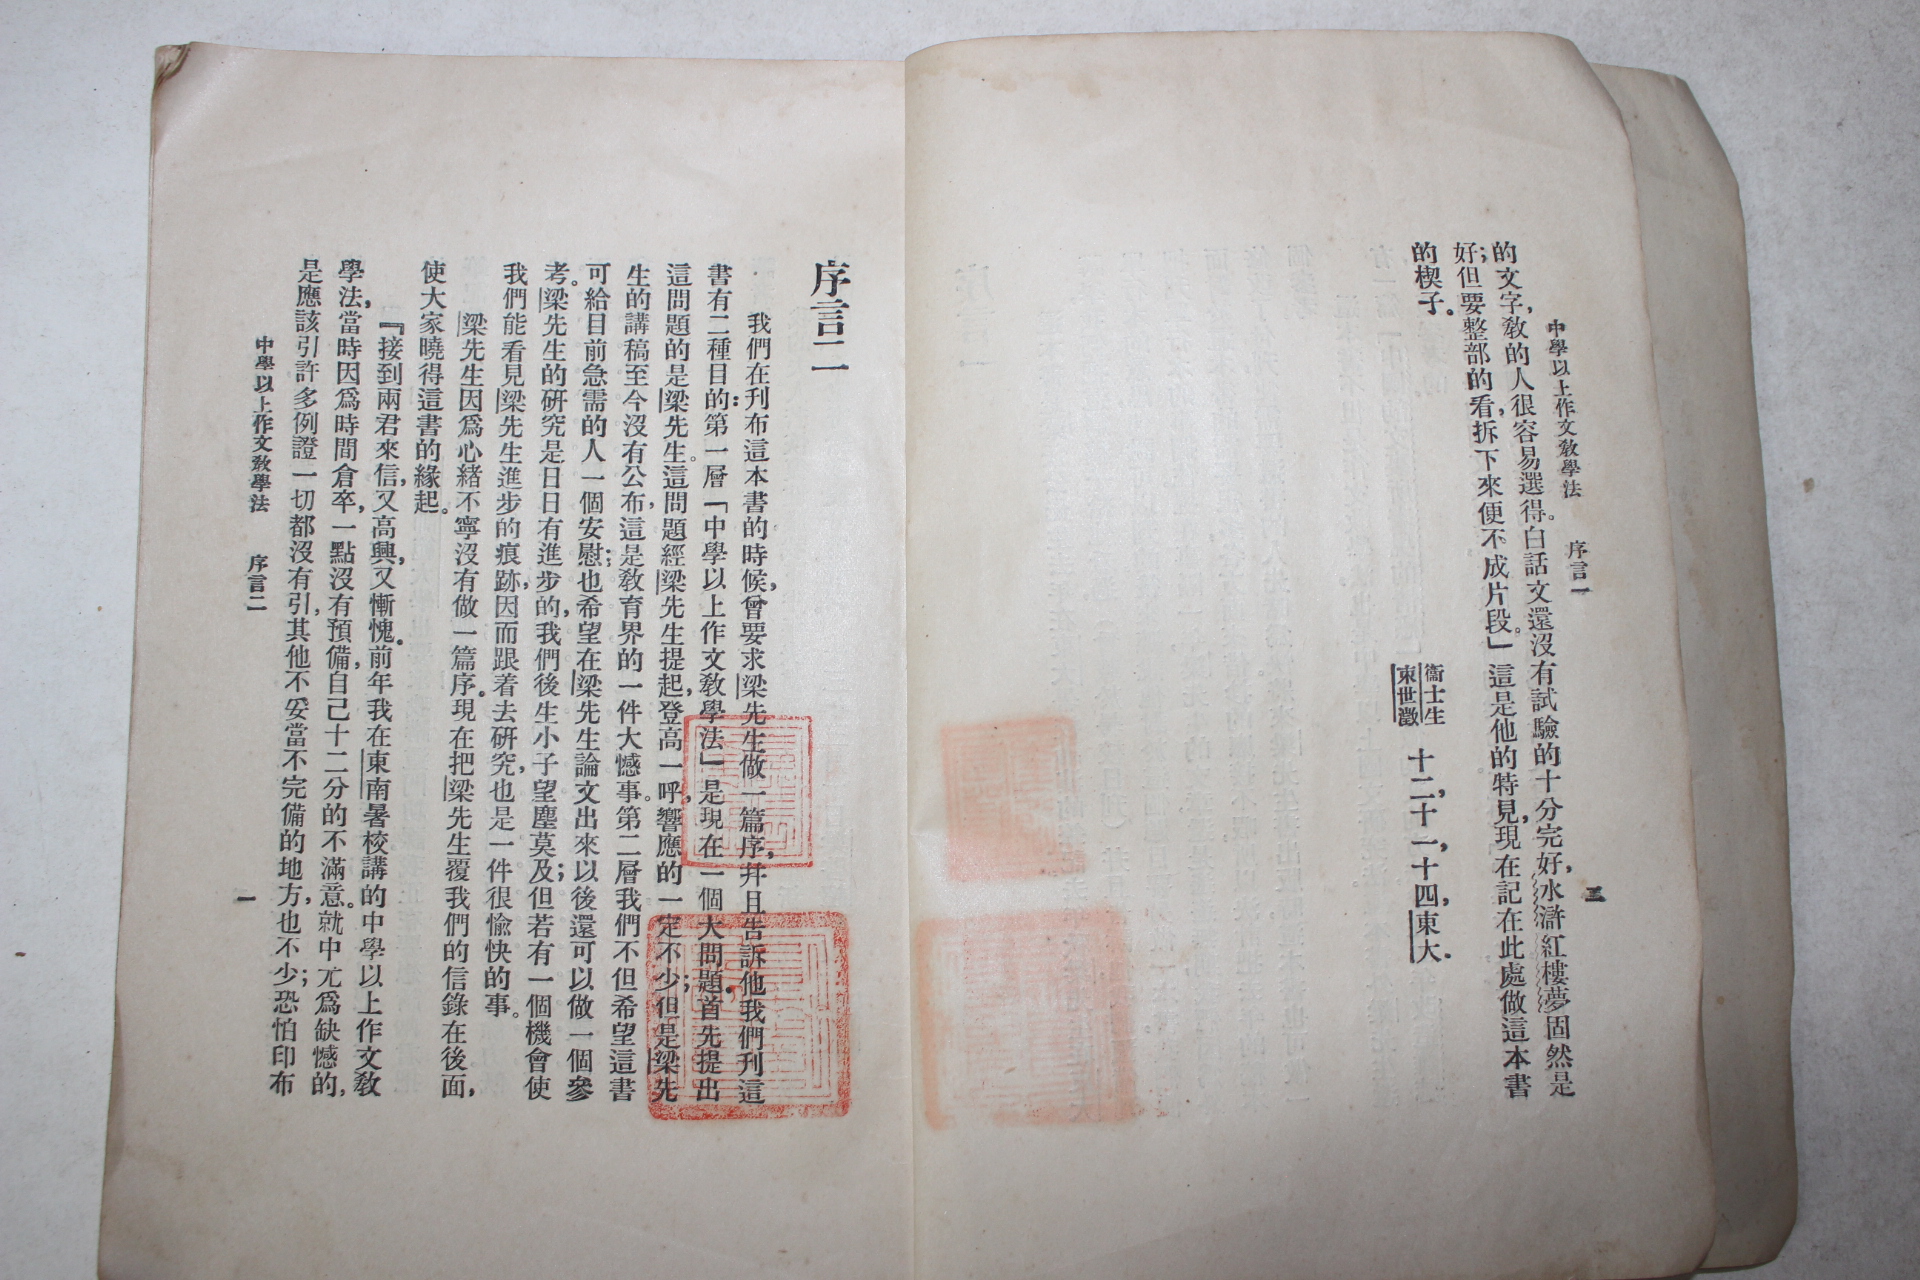 中學以上作文敎學法　序言一　三
的文字，敎的人很容易選得。白話文還沒有試驗的十分完好，水滸紅樓夢固然是
好；但要整部的看，拆下來便不成片段。」這是他的特見，現在記在此處做這本書
的楔子。
衞士生
束世澂
十二，十一，十四，東大．
序言二
我們在刊布這本書的時候，曾要求梁先生做一篇序，幷且告訴他我們刊這
書有二種目的：第一層「中學以上作文敎學法」是現在一個大問題．首先提出
這問題的是梁先生。這問題經梁先生提起，登高一呼，響應的一定不少；但是梁先
生的講稿至今沒有公布，這是敎育界的一件大憾事。第二層我們不但希望這書
可給目前急需的人一個安慰；也希望在梁先生論文出來以後還可以做一個參
考。梁先生的硏究是日日有進步的，我們後生小子望塵莫及；但若有一個機會使
我們能看見梁先生進步的痕跡，因而跟着去硏究，也是一件很愉快的事。
梁先生因爲心緖不寧沒有做一篇序。現在把梁先生覆我們的信錄在後面，
使大家曉得這書的緣起。
『接到兩君來信，又高興，又慚愧。前年我在東南暑校講的中學以上作文敎
學法，當時因爲時間倉卒，一點沒有預備，自己十二分的不滿意。就中尤爲缺憾的，
是應該引許多例證一切都沒有引，其他不妥當不完備的地方，也不少；恐怕印布
中學以上作文敎學法　序言二　一